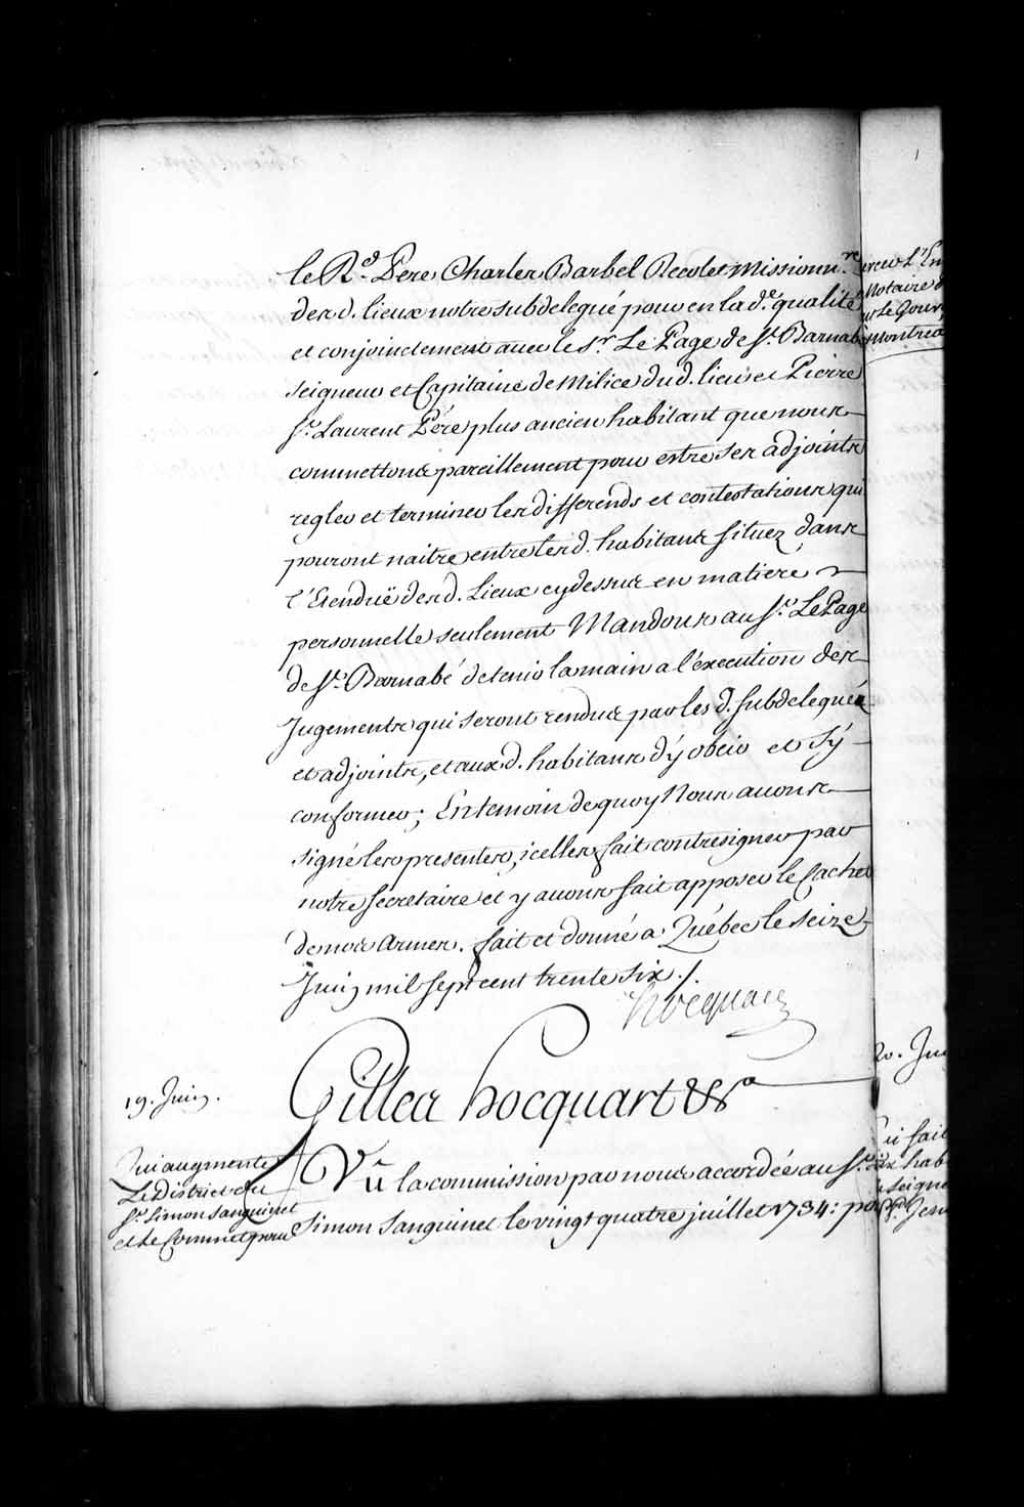 le R.d Pere Charles Barbel Recolet Missionn.re
des d. lieux notre subdelegué pour en lad.e qualité
et conjoinctement avec le s.r Le Page de S.t Barnabé
seigneur et Capitaine de Milice dud. lieu et Pierre
S.t Laurent Péré plus ancien habitant que nous
commettons pareillement pour estre ses adjoints
regler et terminer les differends et contestations qui
pouront naitre entre lesd. habitans situez dans
l'Etenduë desd. Lieux cydessus en matiere
personnelle seulement Mandons au S.r Le Page
de S.t Barnabé de tenir la main a l'execution des
Jugements qui seront rendus par les d. subdelegués
et adjoints, et aux d. habitans d'y obéir et s'y
conformer; En temoin de quoy Nous avons
signé les presentes, icelles fait contresigner par
notre secretaire et y avons fait apposer le Cachet
de nos Armes. fait et donné a Québec le seize
Juin mil sept cent trente six ./.
Hocquart
19. Juin.
Gilles hocquart &.a
Qui augmente
Le District du
S.r Simon Sanguinet
et le Commet pour
Vû la commission par nous accordée au S.r
Simon Sanguinet le vingt quatre juillet 1734: po
Notaire
Le Gouv
Montrea
20. Jui
ui fait
hab
Seigne